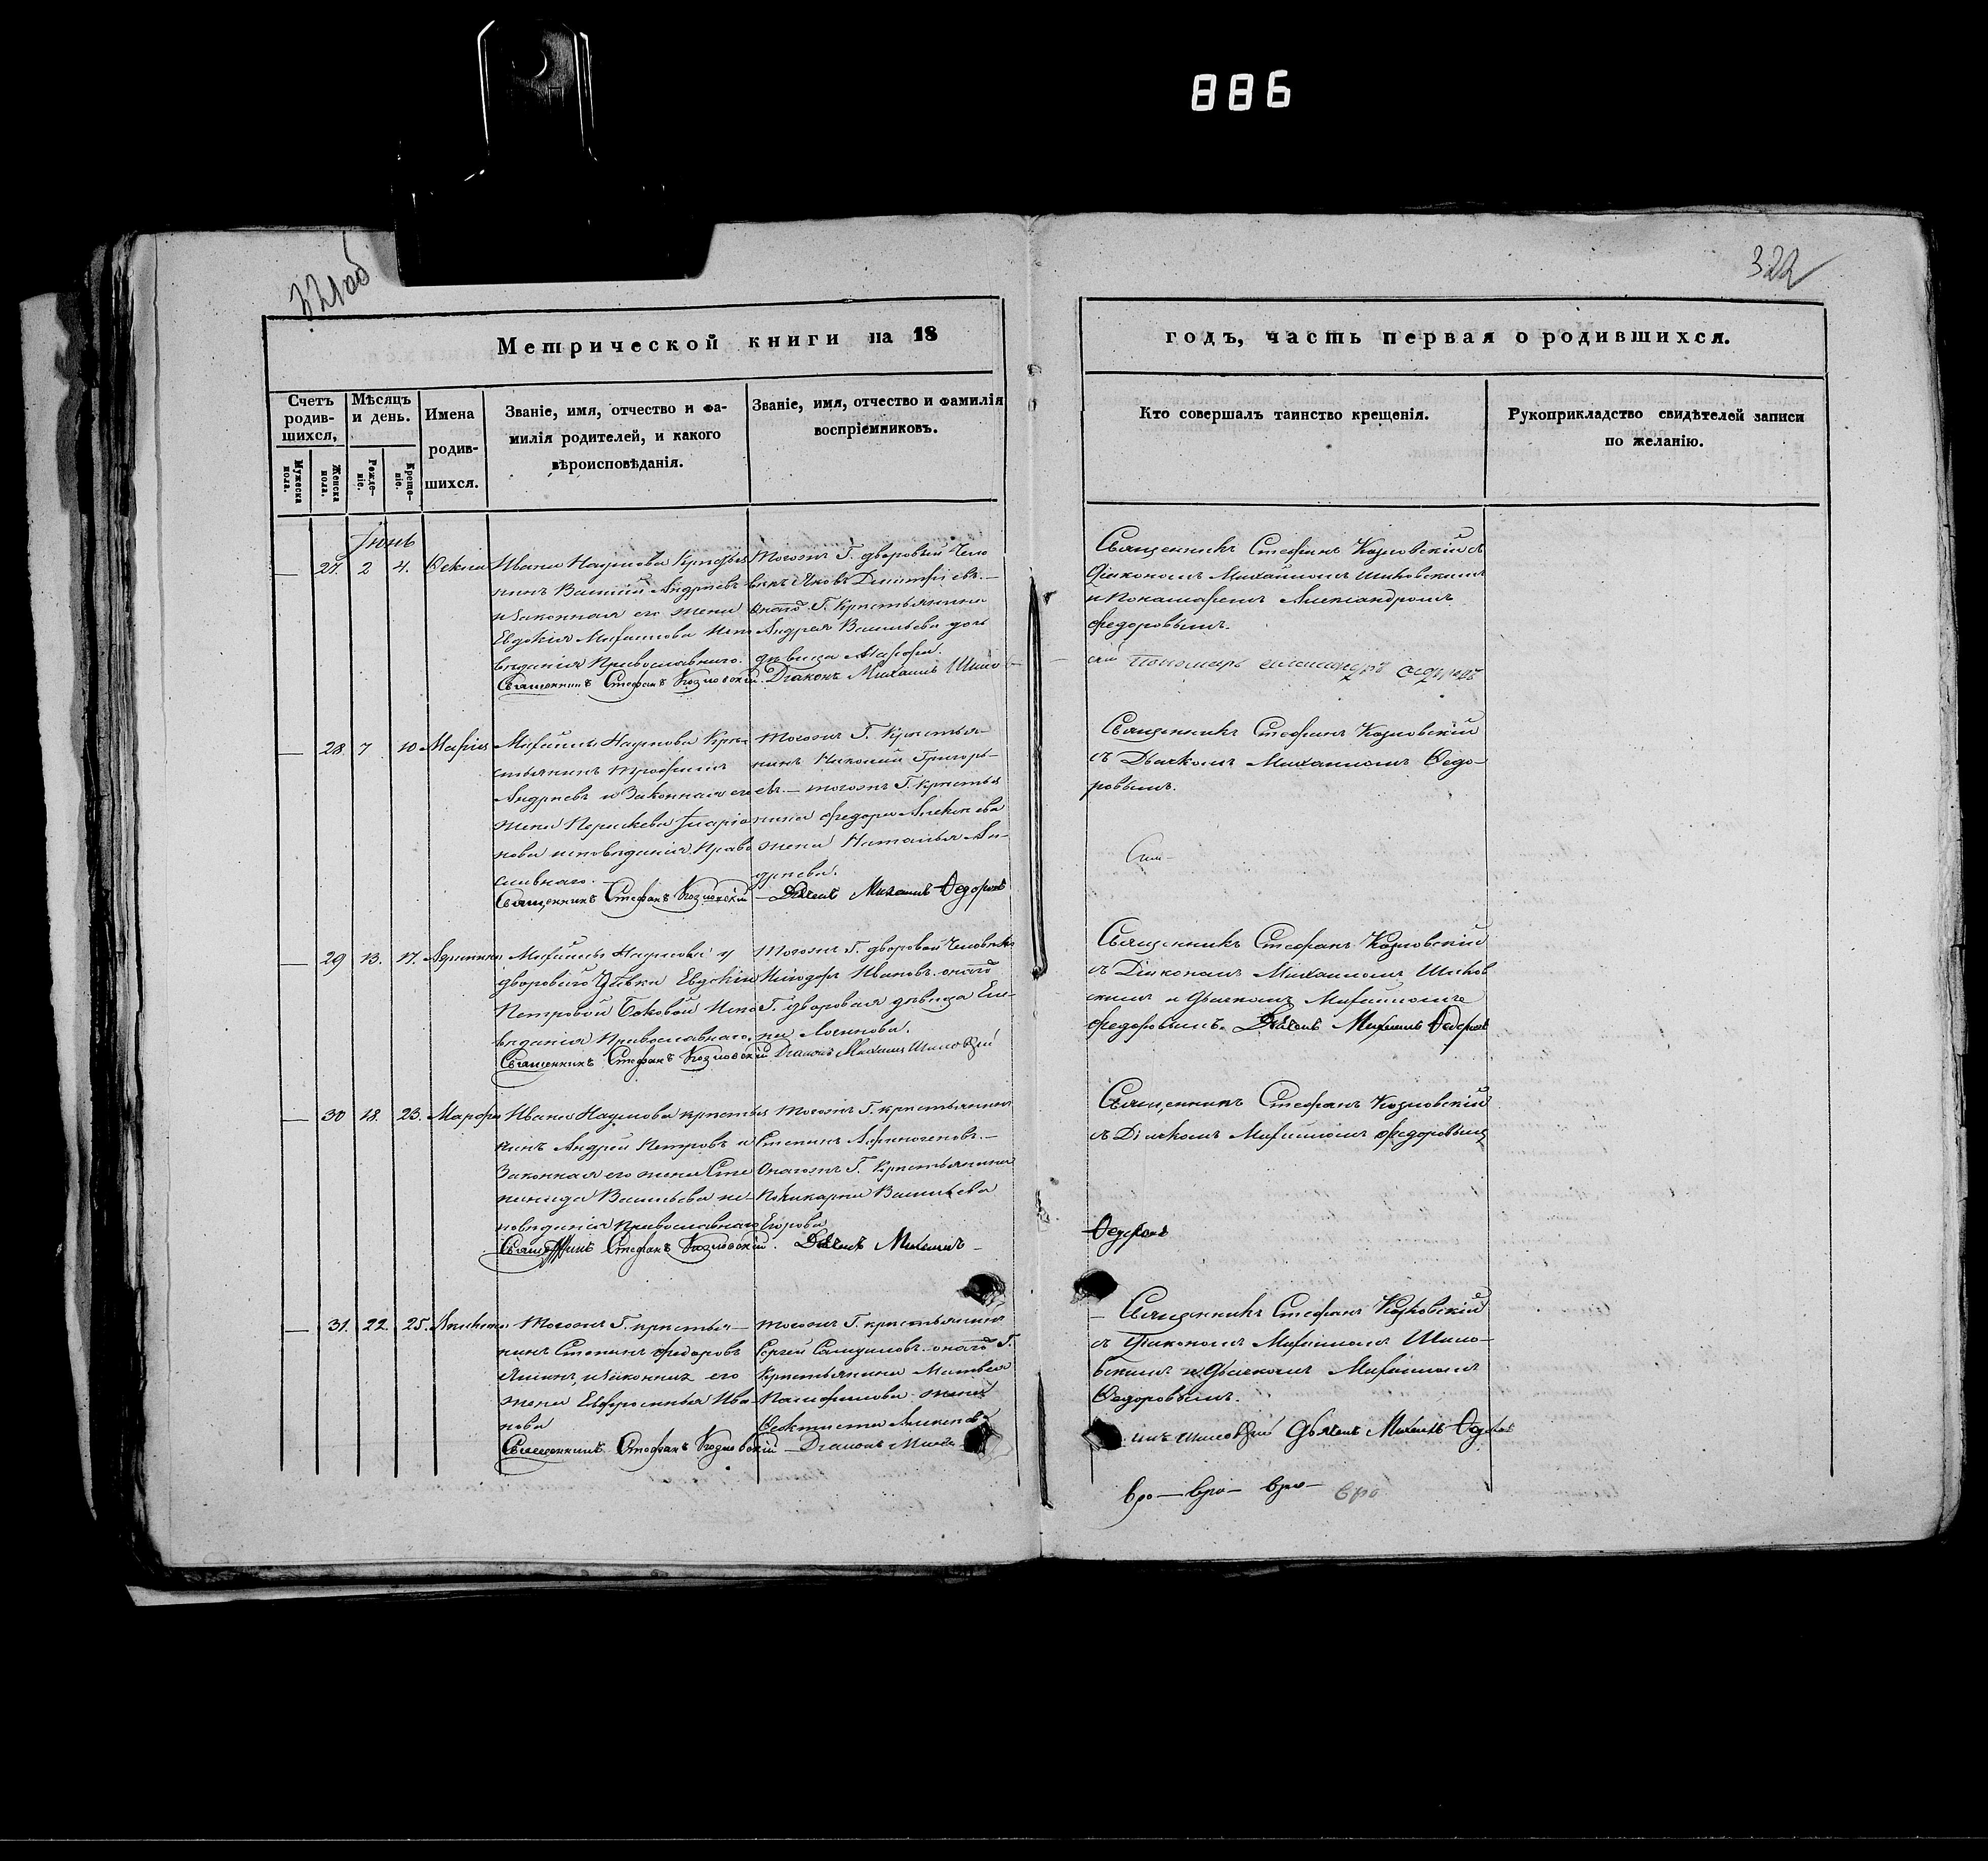 886
321об
322
Метрической книги на 18
годъ, часть первая о родившихся.
Счетъ родив-шихся,
Мужеска пола.
Женска пола.
Мѣсяцъ и день.
Рожде-ніе.
Креще-ніе.
Имена
родив-
шихся.
Званіе, имя, отчество и фа-
милія родителей, и какого
вѣроисповѣданія.
Званіе, имя, отчество и фамилія
воспріемниковъ.
Кто совершалъ таинство крещенія.
Рукоприкладство свидѣтелей записи
по желанію.
Іюнь
27. 2 4.
Ивана Наумова Крестья
нинъ Василій Андреевъ
и законная его жена
Евдокія Михайлова Испо
вѣданія Православнаго.
Священникъ Стефанъ Козловскій.
Тогожъ Г. дворовый Чело
вѣкъ Яковъ Димитріевъ.—
онаго Г. Крестьянина
Андрея Васильева дочь
дѣвица Марфа.
Діаконъ Михаилъ Шилов
Священникъ Стефанъ Козловскій съ
Діакономъ Михаиломъ Шиловскимъ
и Пономаремъ Александромъ
Федоровымъ.
скій Пономарь Александръ Федоровъ
— 28. 7 10 Марія
Михайлы Наумова Кре-
стьянинъ Трофимъ
Андреевъ и Законная его
жена Параскева Иларіо
нова исповѣданія Право
славнаго.
Священникъ Стефанъ Козловскій
Тогожъ Г. Крестья-
нинъ Николай Григорь-
евъ.— тогожъ Г. Крестья
нина Федора Алексѣева
жена Наталья Ан-
дреева.
— Дьячекъ Михаилъ Федоровъ
Священникъ Стефанъ Козловскій
съ Дьячкомъ Михаиломъ Федо-
ровымъ.
— 29 13. 17. Агрипина
Михайлы Наумова у
дворовой Дѣвки Евдокіи
Петровой Боковой Испо
вѣданія Православнаго.
Священникъ Стефанъ Козловскій
Тогожъ Г. дворовой Человѣкъ
Ивановъ. онаго
Г. дворовая дѣвица Еле-
на Логинова.
Діаконъ Михаилъ Шиловскій
Священникъ Стефанъ Козловскій
съ Діакономъ Михаиломъ Шилов
скимъ и Дьячкомъ Михайломъ
Федоровымъ. Дьячекъ Михаилъ Федоровъ
— 30 18. 23. Марфа
Ивана Наумова крестья
нинъ Андрей Петровъ и
Законная его жена Сте
панида Васильева ис-
повѣданія Православнаго
Священникъ Стефанъ Козловскій.
Тогожъ Г. крестьянинъ
Степанъ Афиногеновъ.—
Онагожъ Г. Крестьянина
Поликарпа Васильева
Егорова
Дьячекъ Михаилъ —
Священникъ Стефанъ Козловскій
съ Дьячкомъ Михаиломъ Федоровымъ
Федоровъ
— 31. 22. 25.
Тогожъ Г. крестья—
нинъ Степанъ Федоровъ
и законная его
жена Евфросинья Ива-
нова
Священникъ Стефанъ Козловскій
тогожъ Г. крестьянинъ
Сергей Самуиловъ. онаго Г.
Крестьянина Матвея
Памфилова жена
Феоктиста Алексеева
— Діаконъ Миха
— Священникъ Стефанъ Козловскій
съ Діакономъ Михаиломъ Шило-
вскимъ и Дьячкомъ Михаиломъ
Федоровымъ.
илъ Шиловскій Дьячекъ Михаилъ Федоровъ